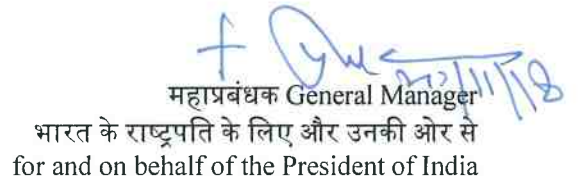 महाप्रबंधक General Manager
भारत के राष्ट्रपति के लिए और उनकी ओर से
for and on behalf of the President of India